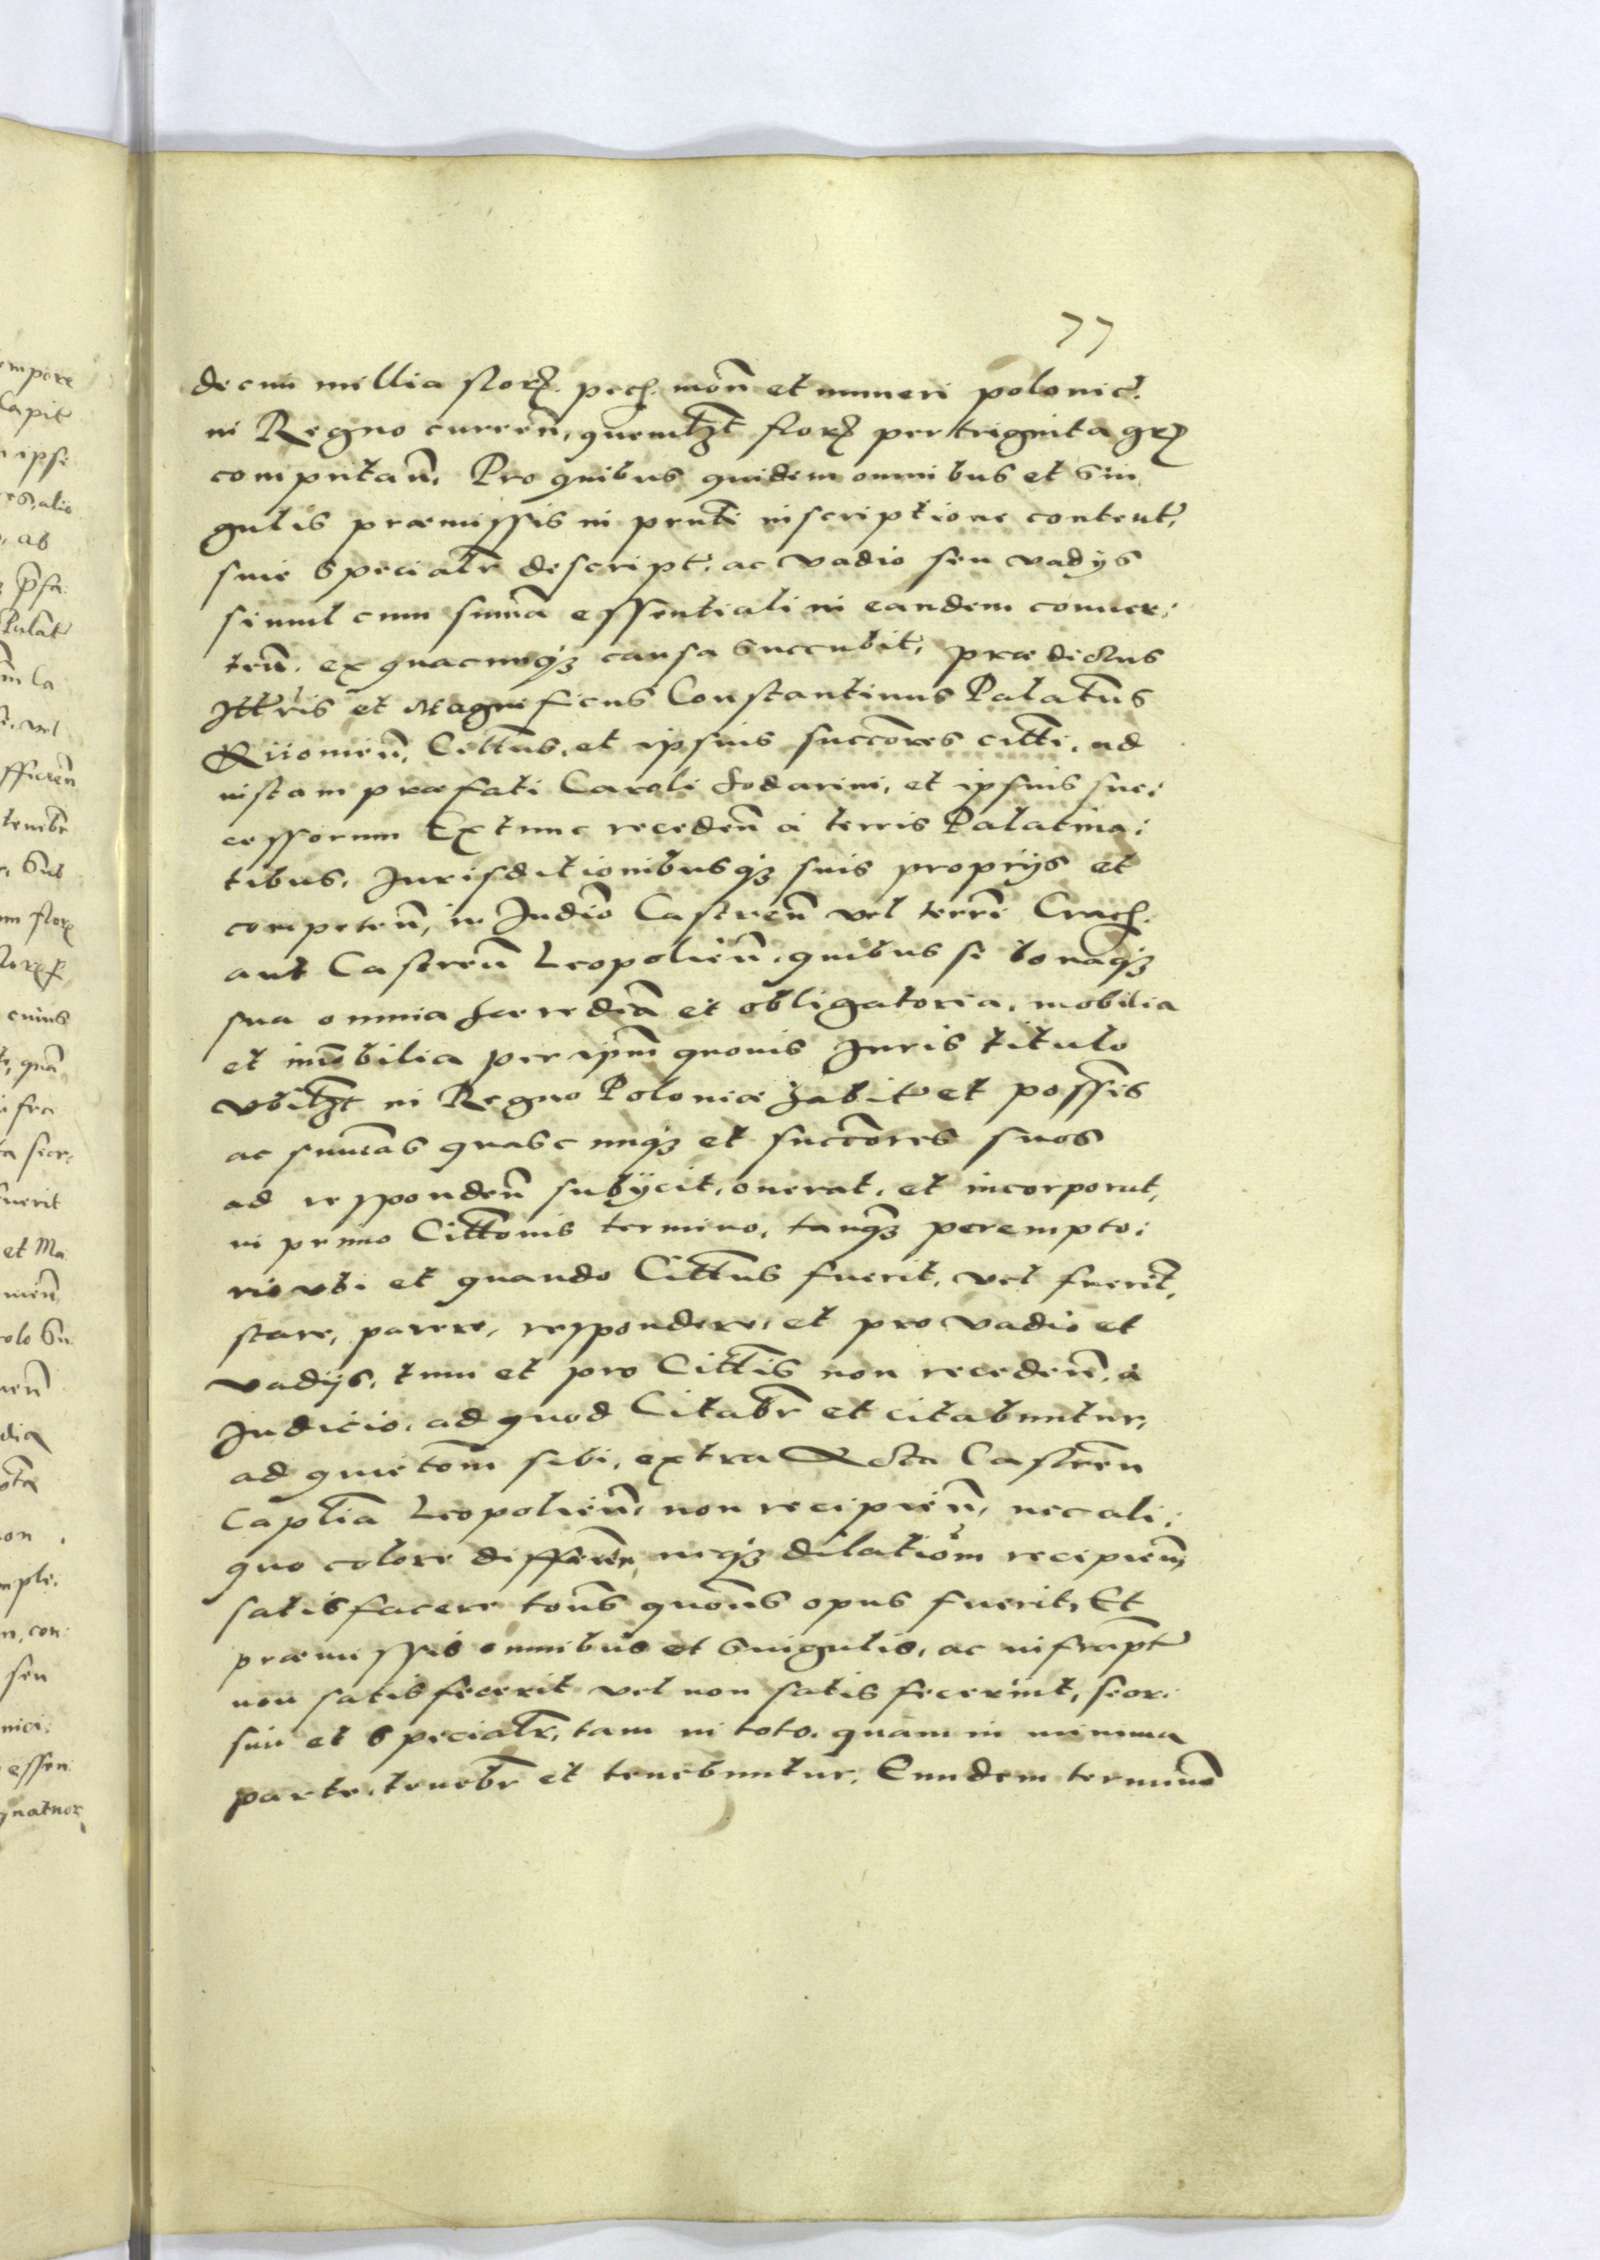 77
decim millia florȝ. pecȝ. moñ et numeri polonic̃.
in Regno curreñ, quemlt̃ florȝ per triginta grȝ
computañ, Pro quibus quidem omnibus et sin
gulis præmissis in prnti inscriptione content̃,
sive specialr̃ descript̃. ac vadio seu vadÿs
simul cum sum̃a essentiali in eandem conuer:
teñ. ex quacunq̃ causa succubit̃, prædictus
Illr̃is et Magnificus Constantinus Palat̃nus
Kiiomieñ, Citt̃us, et ipsius succõres citt̃i, ad
instam præfati Caroli Fodarini, et ipsius suc:
cessorum Extunc recedeñ à terris Palatina:
tibus, Jurisditionibusq̃ suis proprÿs et
competeñ, in Judiõ Castreñ vel terrĩ Cracȝ.
aut Castreñ Leopolieñ. quibus se bonaq̃
sua omnia hæredia et obligatoria, mobilia
et im̃obilia per ip̃m quouis Juris titulo
vbilt̃ in Regno Poloniæ habita et posses̃
ac sum̃as quascunq̃ et succõres suos
ad respondeñ subÿcit, onerat, et incorporat,
in primo Citt̃onis termino, tanq̃ perempto:
rio vbi et quando Citt̃us fuerit, vel fuerit̃,
stare, parere, respondere, et pro vadio et
vadÿs, tum et pro Citt̃is non recedeñ, à
Judicio, ad quod Citabr̃ et citabuntur,
ad quietõm sibi, extra Acta Castreñ
Capl̃ia Leopolieñ, non recipieñ, nec ali:
quo colore differeñ, neq̃ dilatiõm recipieñ,
satisfacere toñs quoñs opus fuerit, Et
præmissis omnibus et singulis, ac infrapt̃
non satisfecerit vel non satisfecerint, seor:
sim et specialr̃, tam in toto. quam in minima
parte. tenebr̃ et tenebuntur. Eundem terminũ